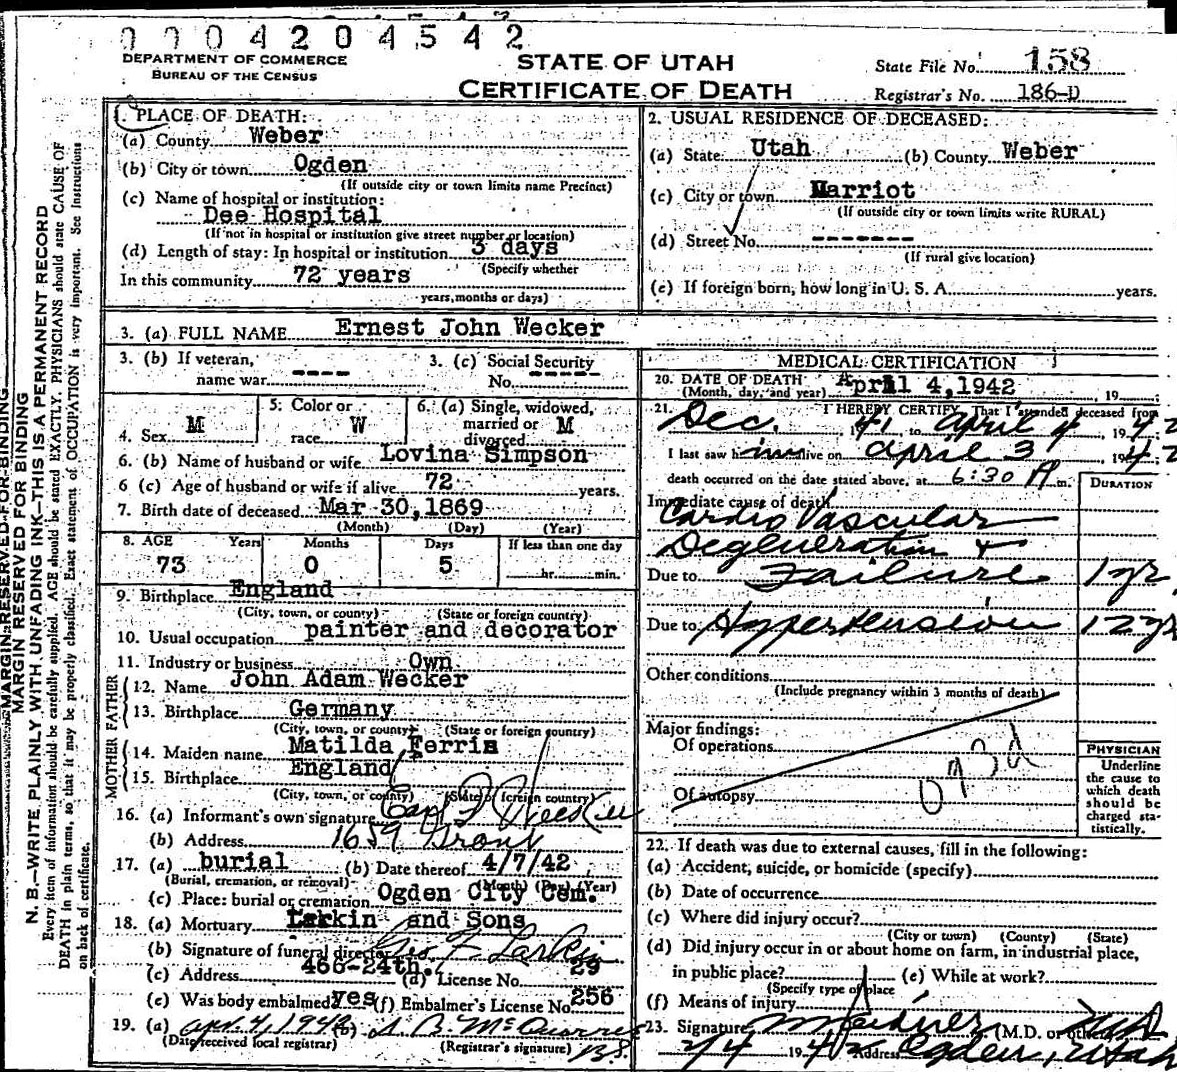 0 0 0 4 2 0 4 5 4 2
DEPARTMENT OF COMMERCE
BUREAU OF THE CENSUS
STATE OF UTAH
CERTIFICATE OF DEATH
State File No. 158
Registrar's No. 186-D
MARGIN RESERVED FOR BINDING
MARGIN RESERVED FOR BINDING
N. B.—WRITE PLAINLY WITH UNFADING INK—THIS IS A PERMANENT RECORD
Every item of information should be carefully supplied. AGE should be stated EXACTLY. PHYSICIANS should state CAUSE OF
DEATH in plain terms, so that it may be properly classified. Exact statement of OCCUPATION is very important. See Instructions
on back of certificate.
1. PLACE OF DEATH:
(a) County Weber
(b) City or town Ogden
(If outside city or town limits name Precinct)
(c) Name of hospital or institution:
Dee Hospital
(If not in hospital or institution give street number or location)
(d) Length of stay: In hospital or institution 3 days
(Specify whether
In this community 72 years
years, months or days)
2. USUAL RESIDENCE OF DECEASED:
(a) State Utah (b) County Weber
(c) City or town Marriot
(If outside city or town limits write RURAL)
(d) Street No. -------
(If rural give location)
(e) If foreign born, how long in U. S. A. years.
3. (a) FULL NAME Ernest John Wecker
3. (b) If veteran, name war ----
3. (c) Social Security No. -----
4. Sex M
5. Color or race W
6. (a) Single, widowed, married or divorced M
6. (b) Name of husband or wife Lovina Simpson
6 (c) Age of husband or wife if alive 72 years.
7. Birth date of deceased Mar 30, 1869
(Month) (Day) (Year)
8. AGE Years Months Days If less than one day
73 0 5 hr. min.
9. Birthplace England
(City, town, or county) (State or foreign country)
10. Usual occupation painter and decorator
11. Industry or business Own
FATHER
12. Name John Adam Wecker
13. Birthplace Germany
(City, town, or county) (State or foreign country)
MOTHER
14. Maiden name Matilda Ferris
15. Birthplace England
(City, town, or county) (State or foreign country)
16. (a) Informant's own signature
(b) Address 1659
17. (a) burial (b) Date thereof 4/7/42
(Burial, cremation, or removal) (Month) (Day) (Year)
(c) Place: burial or cremation Ogden City Cem.
18. (a) Mortuary Larkin and Sons
(b) Signature of funeral director Geo F Larkin
(c) Address 466-24th. (d) License No. 29
(e) Was body embalmed? yes (f) Embalmer's License No. 256
19. (a) Apr. 4, 1942 (b)
(Date received local registrar) (Registrar's signature)
MEDICAL CERTIFICATION
20. DATE OF DEATH April 4, 1942, 19
(Month, day, and year)
21. I HEREBY CERTIFY, That I attended deceased from
Dec., 1941, to April 4, 1942
I last saw him alive on April 3, 1942
death occurred on the date stated above, at 6:30 A m.
DURATION
Immediate cause of death
Cardio Vascular
Degeneration +
Due to Failure 1 yr
Due to Hypertension 12 yr
Other conditions
(Include pregnancy within 3 months of death)
Major findings:
Of operations
Of autopsy
PHYSICIAN
Underline
the cause to
which death
should be
charged sta-
tistically.
22. If death was due to external causes, fill in the following:
(a) Accident, suicide, or homicide (specify)
(b) Date of occurrence
(c) Where did injury occur?
(City or town) (County) (State)
(d) Did injury occur in or about home on farm, in industrial place,
in public place? (e) While at work?
(Specify type of place
(f) Means of injury
23. Signature (M.D. or other)
1942 Address Ogden, Utah